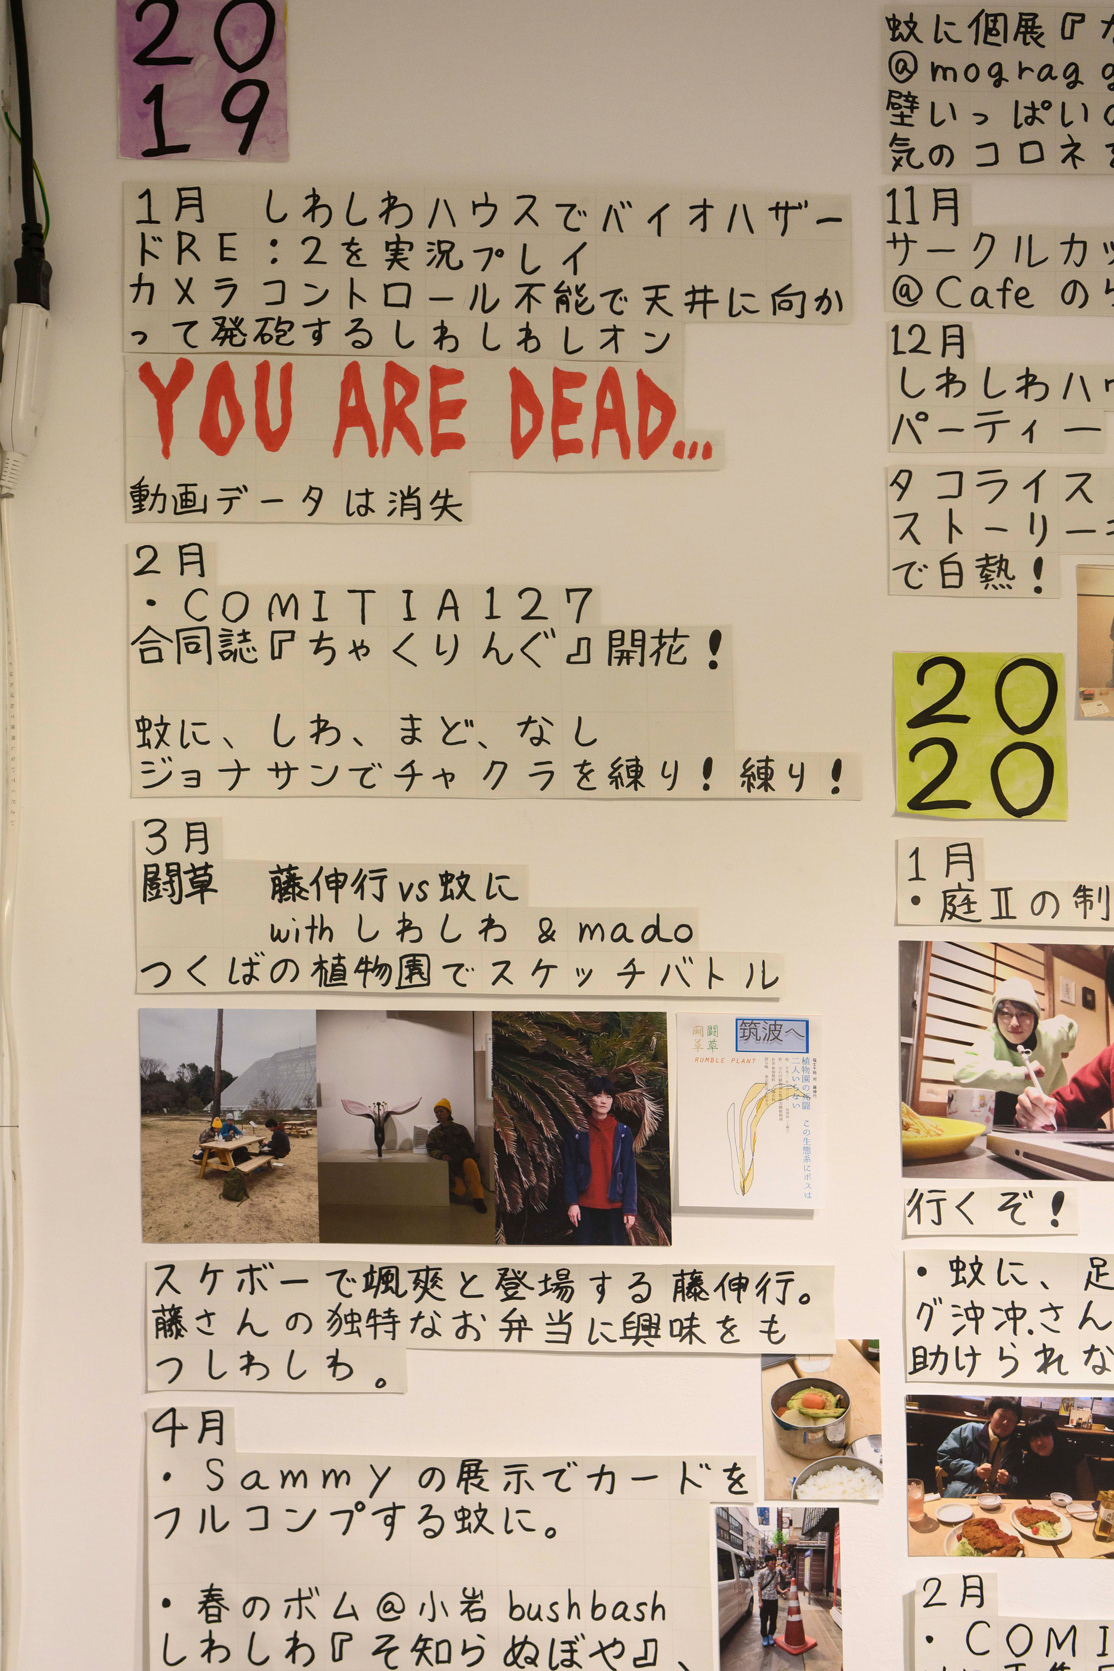 20
19
1月 しわしわハウスでバイオハザー
ドRE：2を実況プレイ
カメラコントロール不能で天井に向か
って発砲するしわしわレオン
YOU ARE DEAD...
動画データは消失
2月
・COMITIA127
合同誌『ちゃくりんぐ』開花！
蚊に、しわ、まど、なし
ジョナサンでチャクラを練り！練り！
3月
闘草 藤伸行vs蚊に
withしわしわ & mado
つくばの植物園でスケッチバトル
闘草
筑波へ
RUMBLE PLANT
植物園の死闘 この生態系にボスは
二人いらない
スケボーで颯爽と登場する藤伸行。
藤さんの独特なお弁当に興味をも
つしわしわ。
4月
・Sammyの展示でカードを
フルコンプする蚊に。
・春のボム@小岩bushbash
しわしわ『そ知らぬぼや』、
蚊に個展『
@mograg g
壁いっぱいの
気のコロネ
11月
サークルカッ
@Cafeのら
12月
しわしわハウ
パーティー
タコライス
ストーリーキ
で白熱！
20
20
1月
・庭Ⅱの制
行くぞ！
・蚊に、足
グ沖冲.さん
助けられな
2月
・COMI